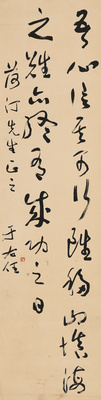 吾心信其可行雖移山填海
之難亦終有成功之日
先生正之
于右任